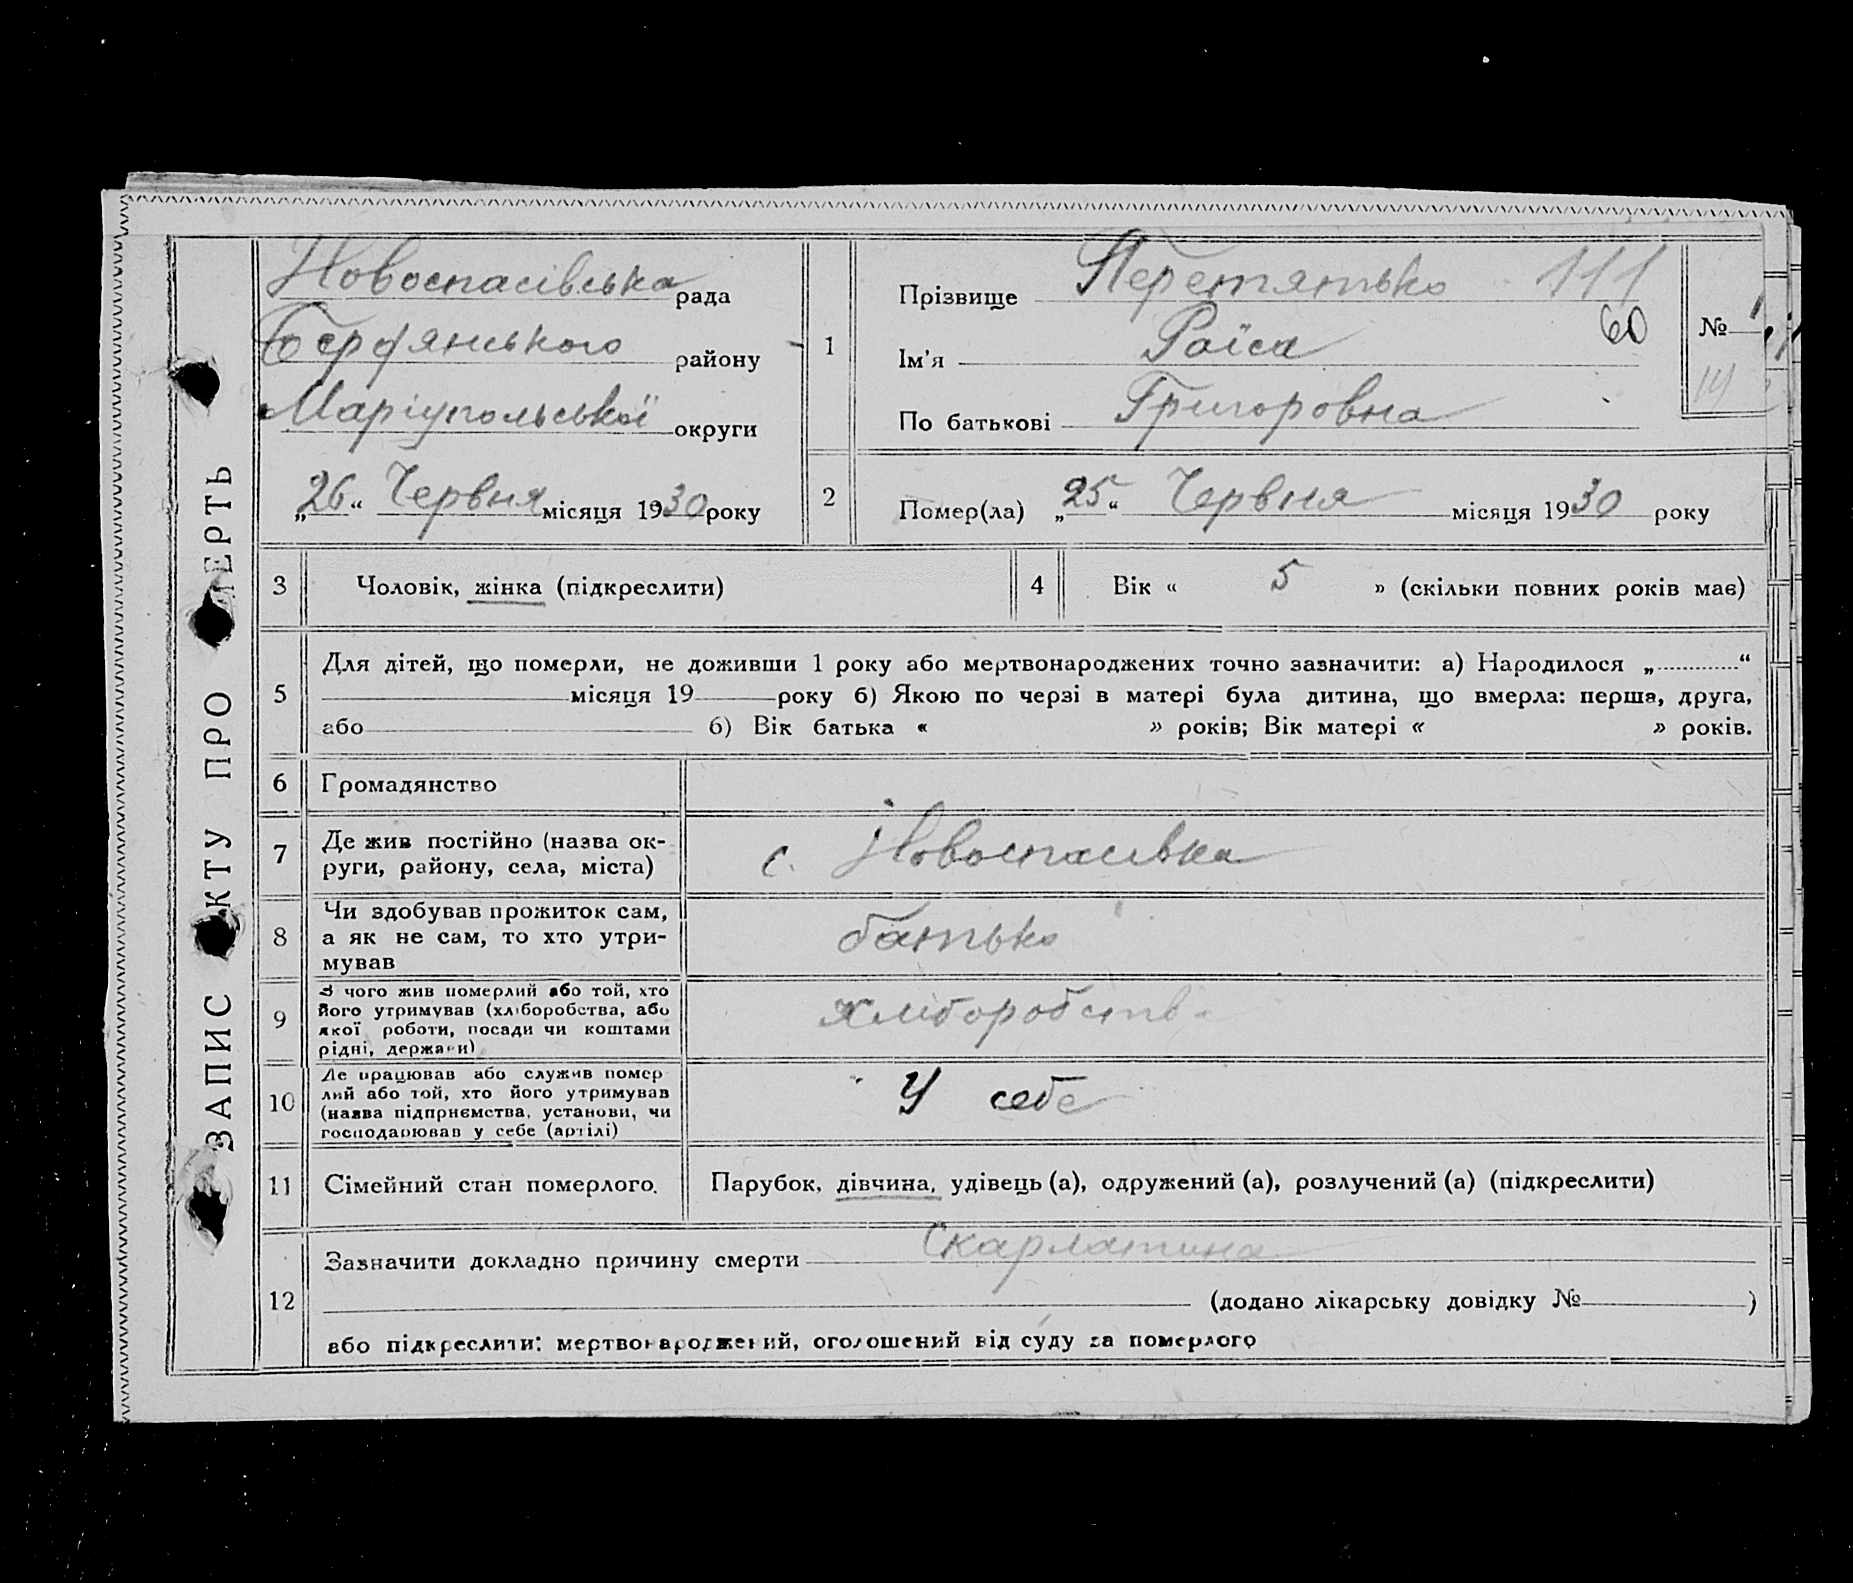 ЗАПИС АКТУ ПРО СМЕРТЬ
Новоспасівська рада
Бердянського району
Маріупольської округи
„26“ Червня місяця 1930 року
1
Прізвище Перетятько 111
Ім'я Раїса 60
По батькові Григоровна
№
2
Помер(ла) „25“ Червня місяця 1930 року
3 Чоловік, жінка (підкреслити)
4 Вік « 5 » (скільки повних років має)
5 Для дітей, що померли, не доживши 1 року або мертвонароджених точно зазначити: а) Народилося „ “
місяця 19 року б) Якою по черзі в матері була дитина, що вмерла: перша, друга,
або б) Вік батька « » років; Вік матері « » років.
6 Громадянство
7 Де жив постійно (назва ок-
руги, району, села, міста)
с. Новоспасівка
8 Чи здобував прожиток сам,
а як не сам, то хто утри-
мував
батько
9 З чого жив померлий або той, хто
його утримував (хліборобства, або
якої роботи, посади чи коштами
рідні, держави)
хліборобств
10 Де працював або служив помер
лий або той, хто його утримував
(назва підприємства, установи, чи
господарював у себе (артілі)
У себе
11 Сімейний стан померлого.
Парубок, дівчина, удівець (а), одружений (а), розлучений (а) (підкреслити)
12 Зазначити докладно причину смерти Скарлатина
(додано лікарську довідку № )
або підкреслити: мертвонароджений, оголошений від суду за померлого